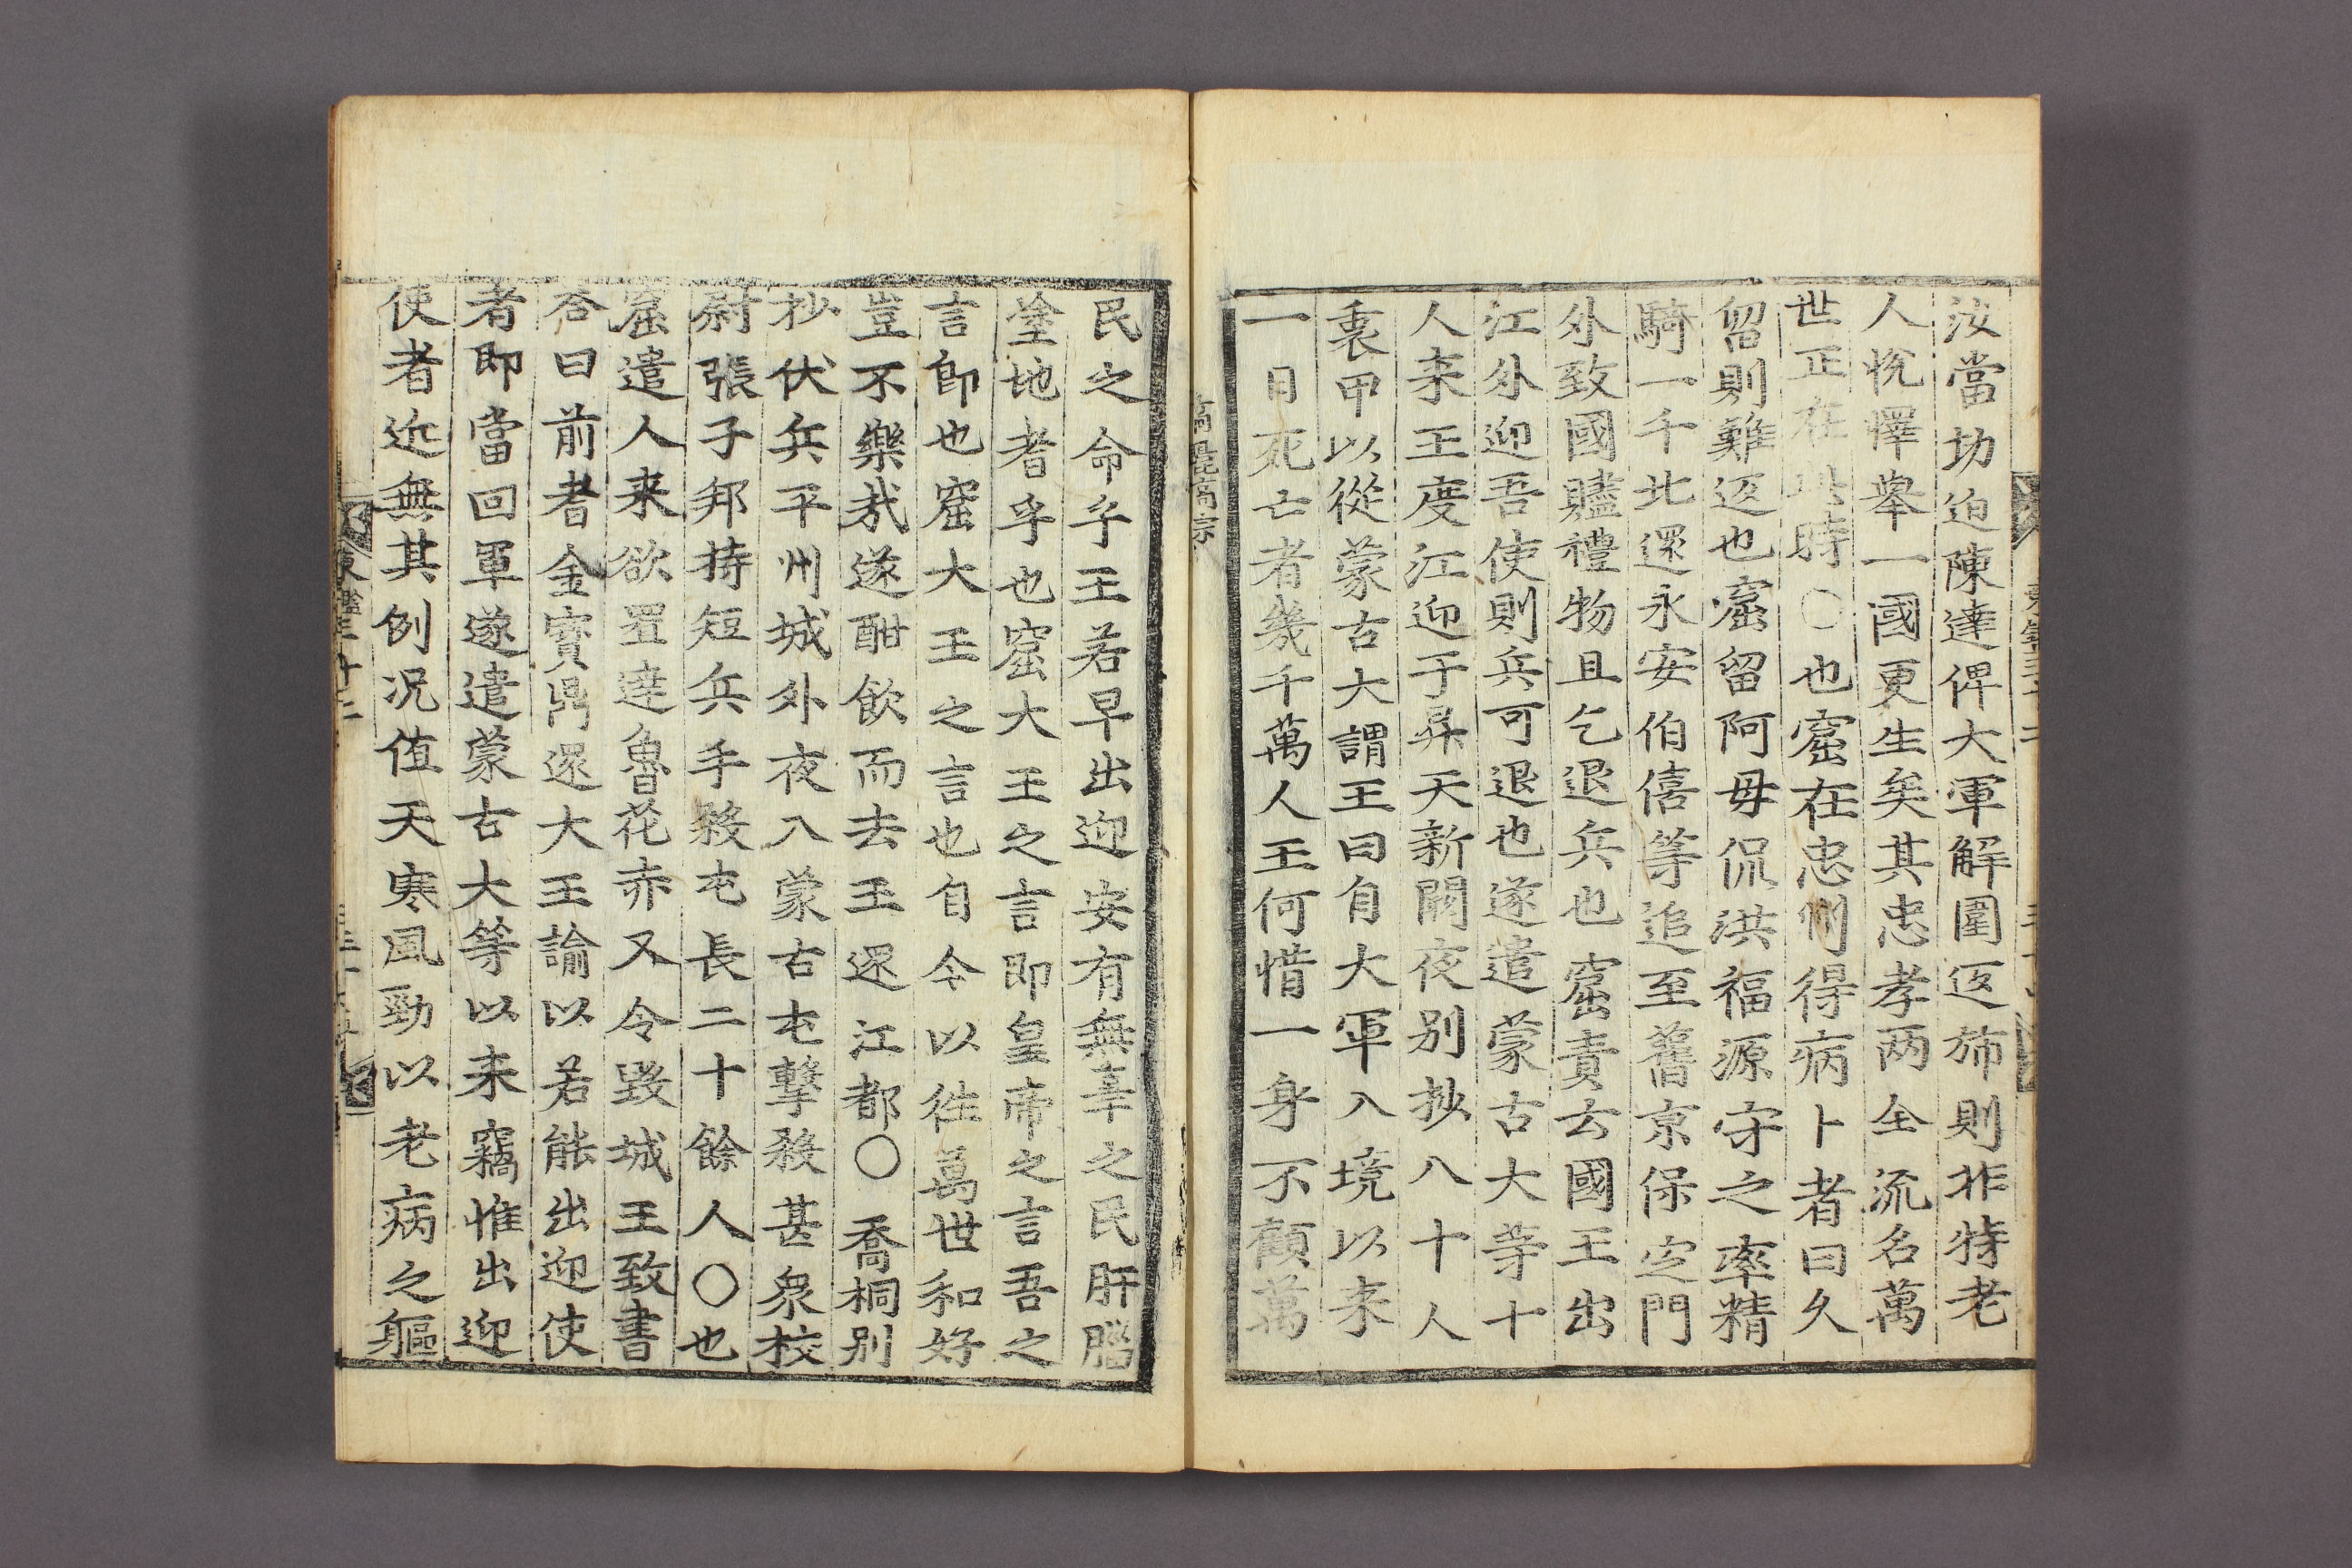 汝當切迫陳達俾大軍解圍返斾則非特老
人悅懌舉一國更生矣其忠孝兩全流名萬
世正在此時○也窟在忠州得病卜者曰久
留則難返也窟留阿毋侃洪福源守之率精
騎一千北還永安伯僖等追至舊京保定門
外致國贐禮物且乞退兵也窟責云國王出
江外迎吾使則兵可退也遂遣蒙古大等十
人来王度江迎于昇天新闕夜别抄八十人
裏甲以從蒙古大謂王曰自大軍入境以来
一日死亡者幾千萬人王何惜一身不顧萬
高麗高宗
民之命乎王若早出迎安有無辜之民肝腦
塗地者乎也窟大王之言即皇帝之言吾之
言即也窟大王之言也自今以徃萬世和好
豈不樂哉遂酣飲而去王還江都○喬桐别
抄伏兵平州城外夜入蒙古屯擊殺甚衆校
尉張子邦持短兵手殺屯長二十餘人○也
窟遣人来欲置達魯花赤又令毀城王致書
荅曰前者金寶鼎還大王諭以若能出迎使
者即當回軍遂遣蒙古大等以来竊惟出迎
使者近無其例况值天寒風勁以老病之軀
東鑑三十二